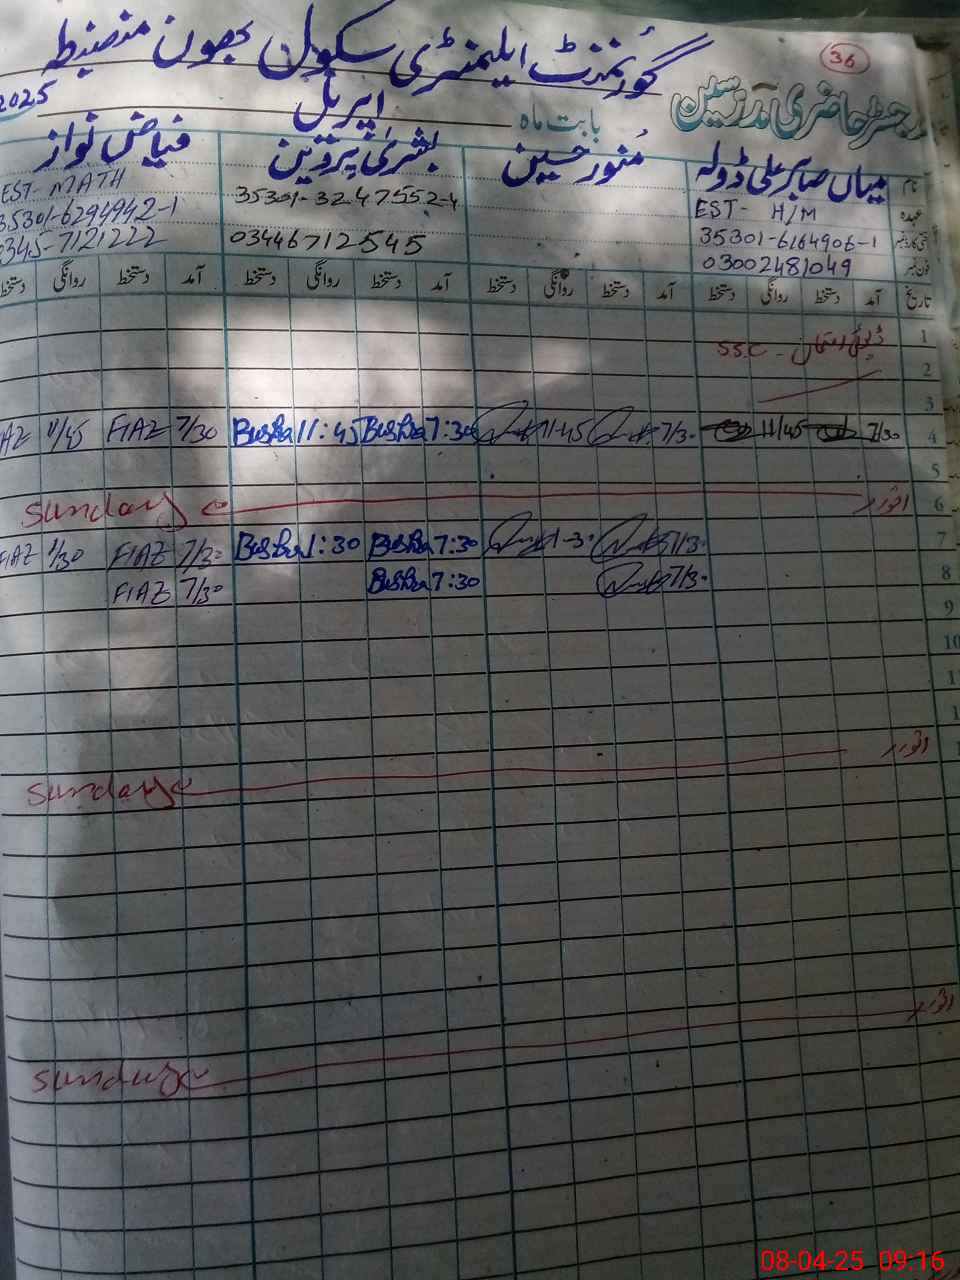 36
گورنمنٹ ایلیمنٹری سکول بھون منضبط
رجسٹر حاضری مدرسین
بابت ماہ اپریل 2025
نام میاں صابر علی ڈولہ منور حسین بشریٰ پروین فیاض نواز
عہدہ EST- H/M EST- MATH
شناختی کارڈ نمبر 35301-6164906-1 35301-3247552-4 35301-6294942-1
فون نمبر 03002481049 03446712545 0345-7121222
تاریخ آمد دستخط روانگی دستخط آمد دستخط روانگی دستخط آمد دستخط روانگی دستخط آمد دستخط روانگی دستخط
1 ڈیوٹی امتحان S.S.C
2
3
4 7/30 11/45 7/30 11/45 7:30 Bushra 11:45 Bushra 7/30 FIAZ 11/45 FIAZ
5
6 اتوار sunday
7 7/30 1-30 7:30 Bushra 1:30 Bushra 7/30 FIAZ 1/30 FIAZ
8 7/30 7:30 Bushra 7/30 FIAZ
9
10
اتوار sunday
اتوار sunday
08-04-25 09:16